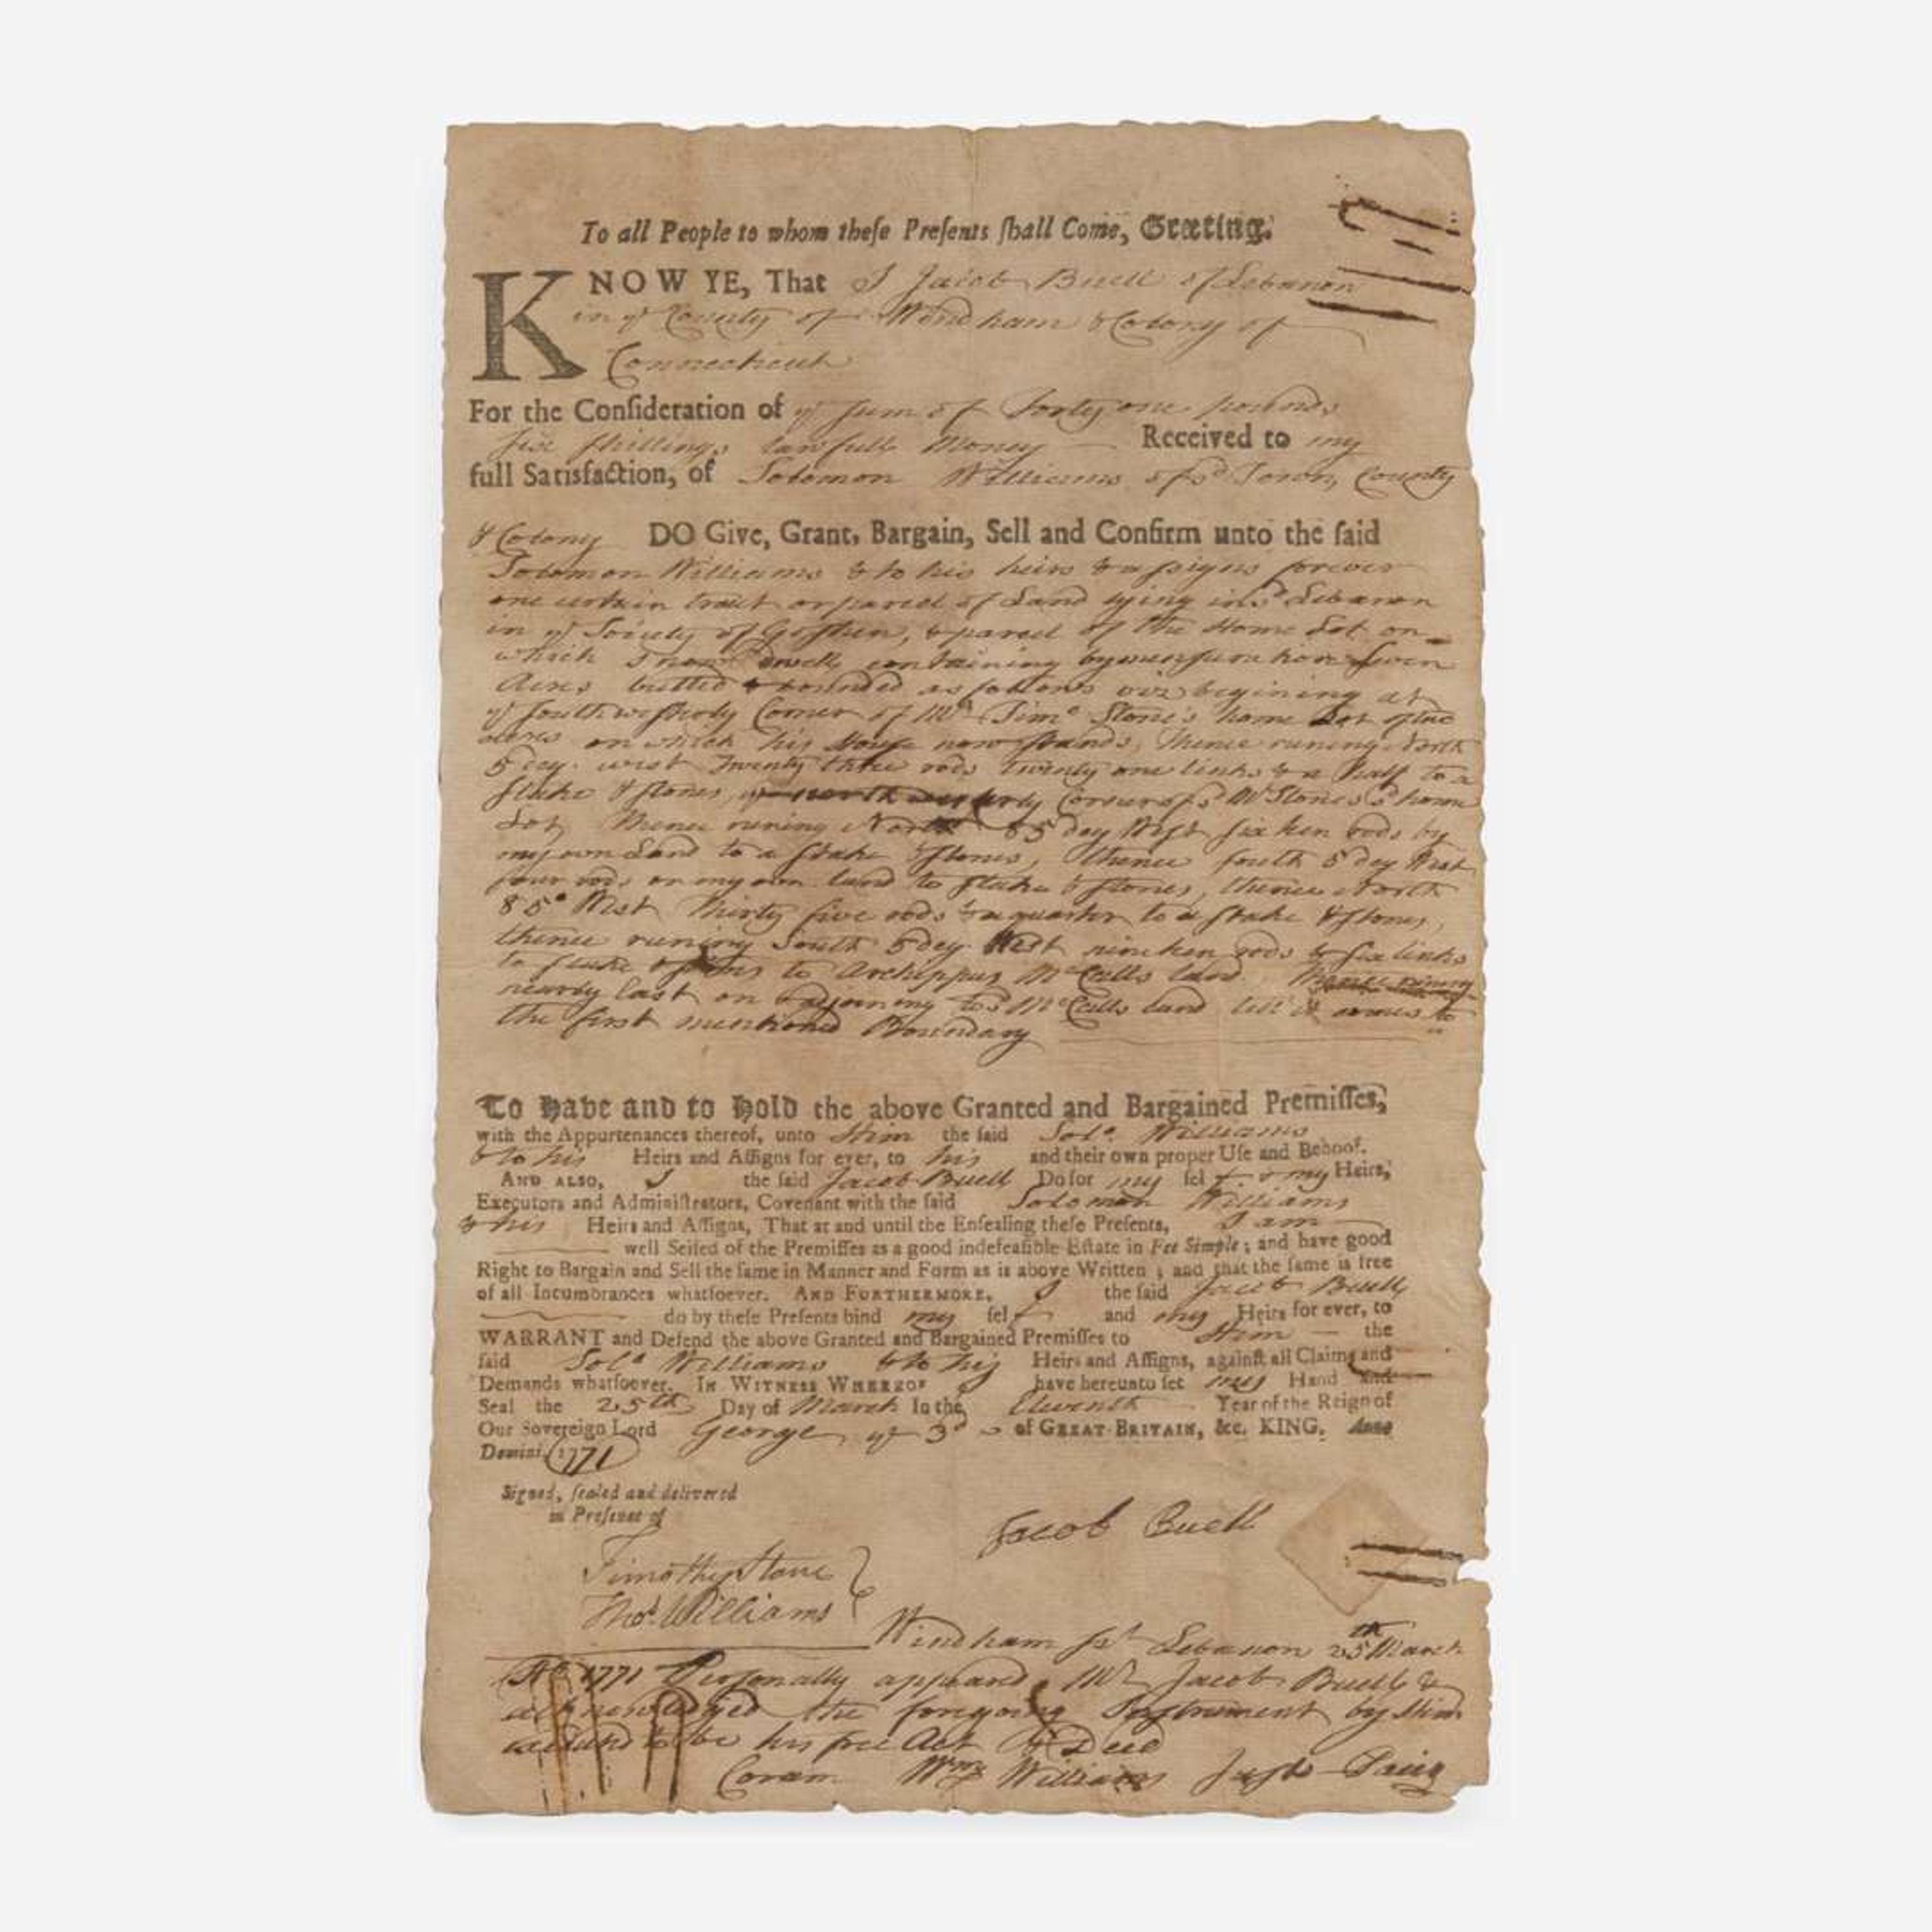 To all People to whom theſe Preſents ſhall Come, Greeting.
KNOW YE, That I Jacob Buell of Lebanon
in yͤ County of Windham & Colony of
Connecticut
For the Conſideration of yͤ Sum of Forty one pounds
Six ſhillings lawfull Money Received to my
full Satisfaction, of Solomon Williams of sᵈ Town, County
& Colony DO Give, Grant, Bargain, Sell and Confirm unto the ſaid
Solomon Williams & to his heirs & aſsigns forever
one certain tract or parcel of Land lying in sᵈ Lebanon
in yͤ Society of Goſhen, & parcel of the Home Lot on
which I now dwell containing by menſuration Seven
Acres butted & bounded as follows viz begining at
yͤ Southweſterly Corner of Mʳ Timᵒ Stone's home Lot of
acres on which his Houſe now ſtands, thence runing North
5 deg. west Twenty three rods Twenty one links & a half to a
Stake & ſtones, yͤ north weſterly Corner of sᵈ Mʳ Stones's home
Lot, thence runing North 85 deg Weſt ſixteen rods by
my own Land to a ſtake & ſtones, thence ſouth 5 deg West
four rods on my own land to ſtake & ſtones, thence North
85° West Thirty five rods & a quarter to a ſtake & ſtones,
thence runing South 5 deg West nineteen rods & ſix links
to ſtake & ſtones to Archippus McCalls land. thence runing
nearly East on & adjoining to sᵈ McCalls land till it comes to
the first mentioned Boundary
To Have and to Hold the above Granted and Bargained Premiſſes,
with the Appurtenances thereof, unto Him the ſaid Solᵒ. Williams
& to his Heirs and Aſſigns for ever, to his and their own proper Uſe and Behoof.
AND ALSO, I the ſaid Jacob Buell Do for my ſelf & my Heirs,
Executors and Adminiſtrators, Covenant with the ſaid Solomon Williams
& his Heirs and Aſſigns, That at and until the Enſealing theſe Preſents, I am
well Seiſed of the Premiſſes as a good indefeaſible Eſtate in Fee Simple; and have good
Right to Bargain and Sell the ſame in Manner and Form as is above Written; and that the ſame is free
of all Incumbrances whatſoever. AND FURTHERMORE, I the ſaid Jacob Buell
do by theſe Preſents bind my ſelf and my Heirs for ever, to
WARRANT and Defend the above Granted and Bargained Premiſſes to Him the
ſaid Solᵒ Williams & to his Heirs and Aſſigns, againſt all Claims and
Demands whatſoever. IN WITNESS WHEREOF I have hereunto ſet my Hand and
Seal the 25th Day of March In the Eleventh Year of the Reign of
Our Sovereign Lord George yͤ 3ᵈ of GREAT-BRITAIN, &c. KING. Anno
Domini, 1771
Signed, ſealed and delivered
in Preſence of
Jacob Buell
Timothy Stone
Thoˢ. Williams
Windham ſsᵗ Lebanon 25th March
AD 1771 Perſonally appeared Mʳ Jacob Buell &
acknowledged the foregoing Inſtrument by Him
to be his free Act & Deed
Coram Wᵐ Williams Juſt Pacis